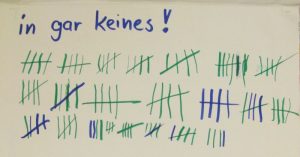 in gar keines!